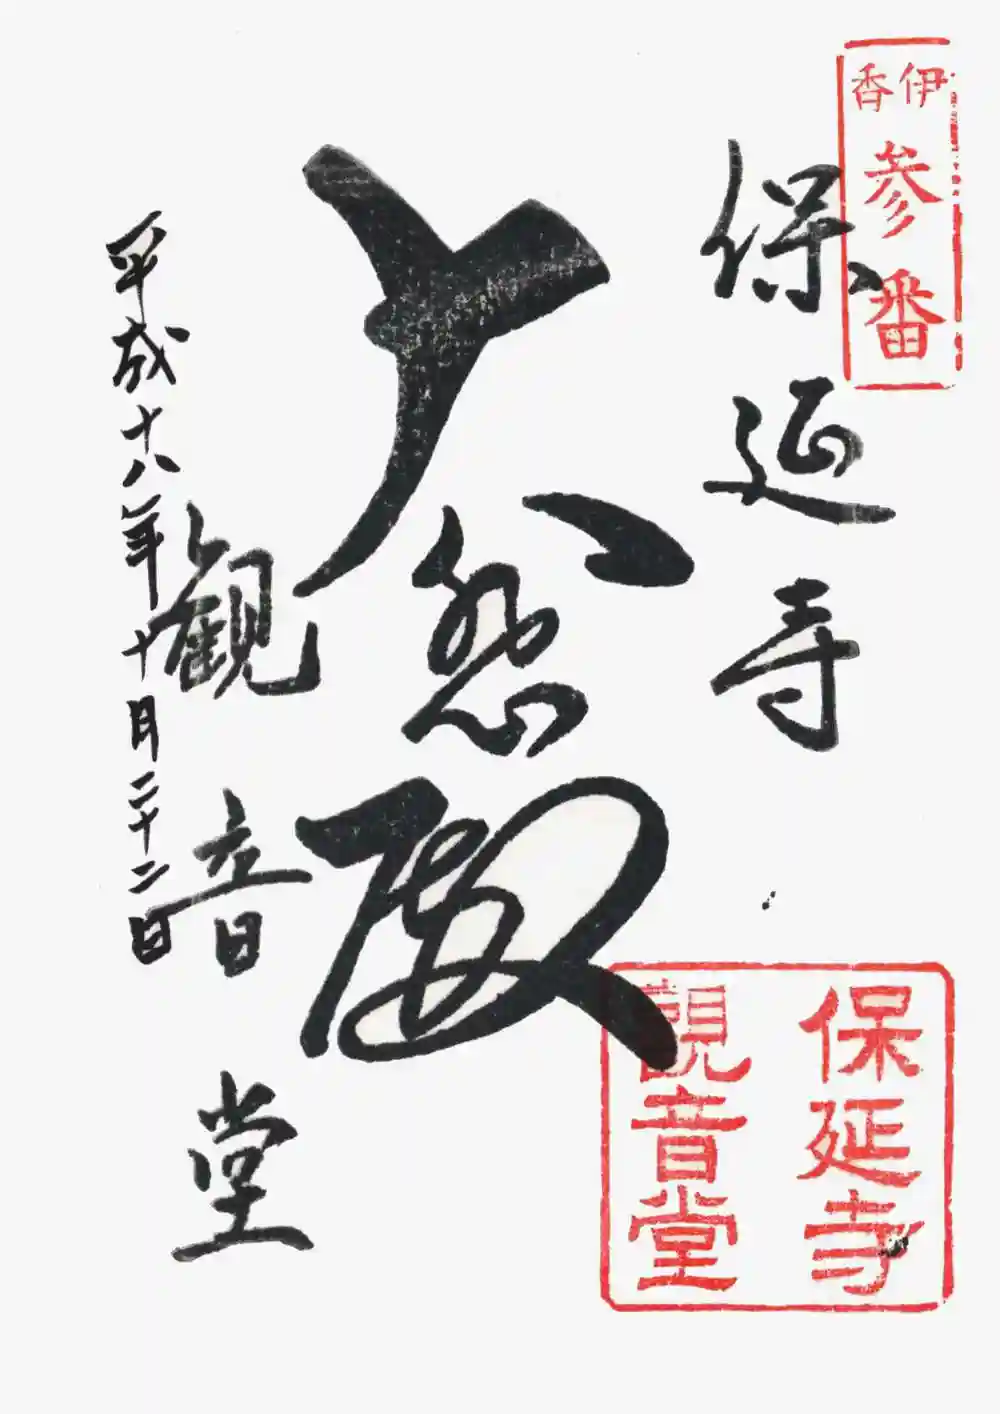 伊香
参番
保延寺
大悲殿
観音堂
平成十八年十月二十二日
保延寺
観音堂